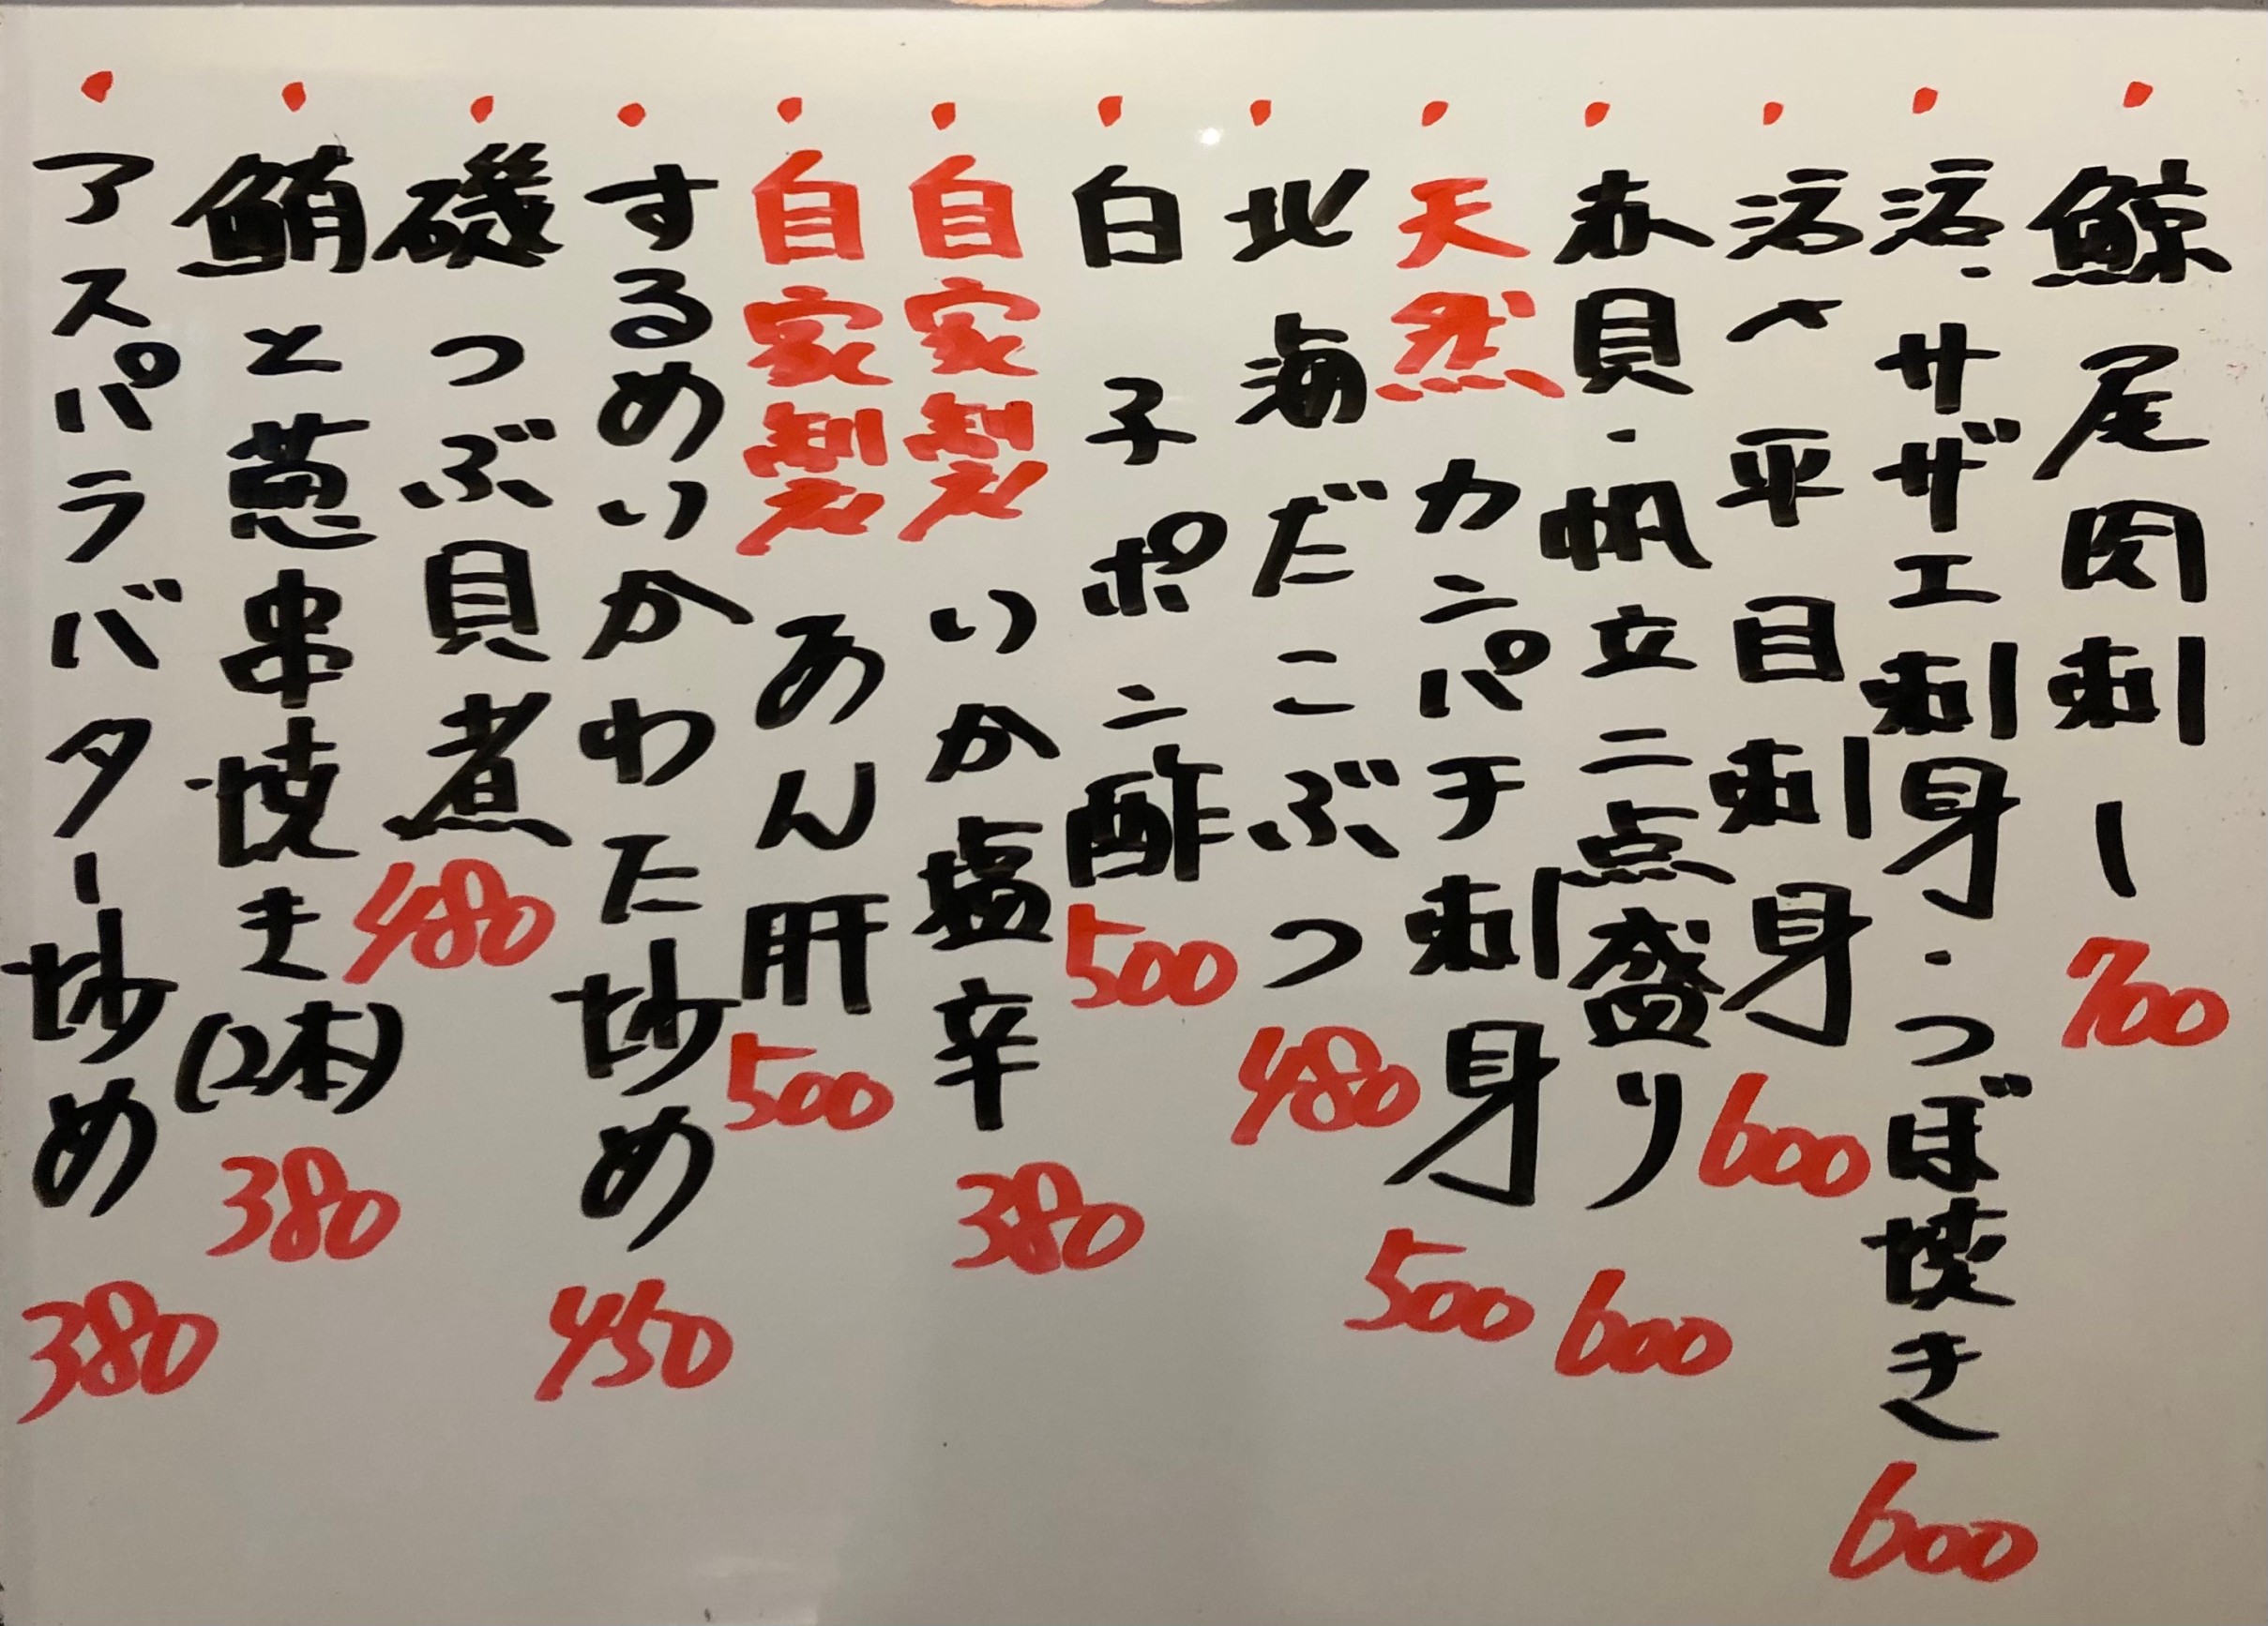 ・鯨尾肉刺し 700
・活・サザエ刺身・つぼ焼き 600
・活〆平目刺身 600
・赤貝・帆立二点盛り 600
・天然カンパチ刺身 500
・北海だこぶつ 480
・白子ポン酢 500
・自家製いか塩辛 380
・自家製あん肝 500
・するめいかわた炒め 450
・磯つぶ貝煮 480
・鮪と葱串焼き(2本) 380
・アスパラバター炒め 380